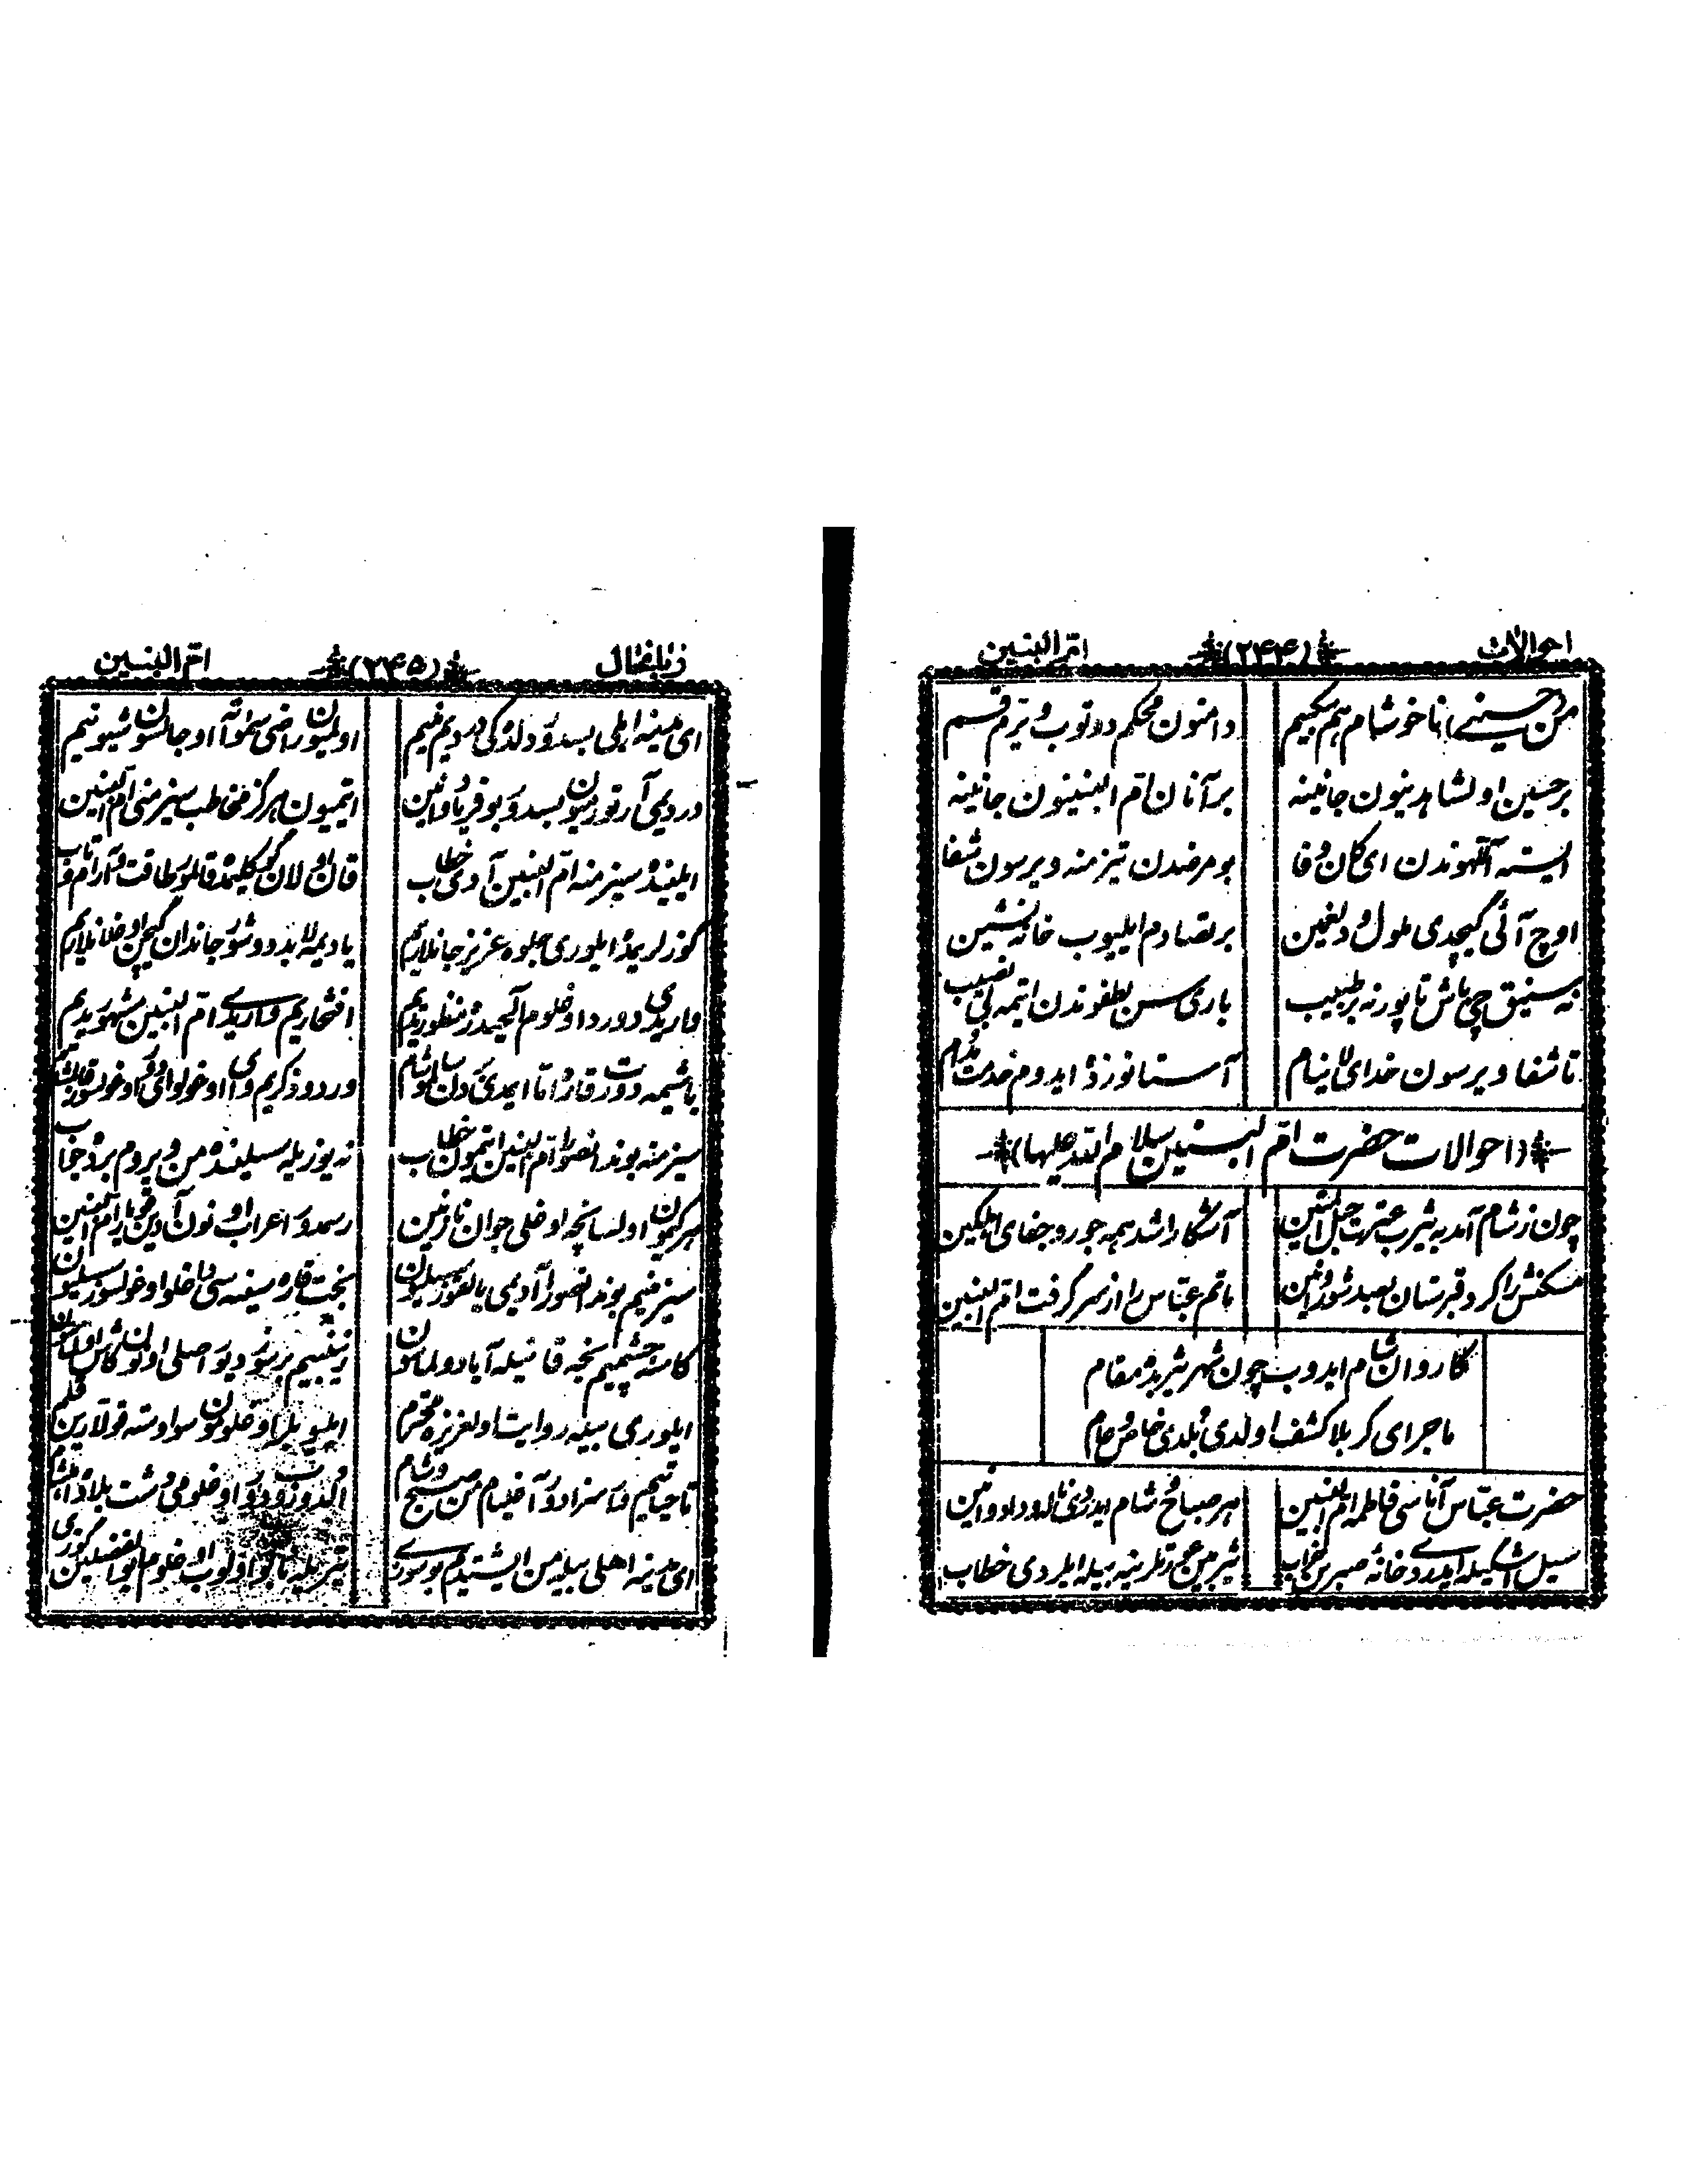 احوالات (۲۴۴) ام البنین
من حسینے ناخوشام هم بیکیم دامنون محکم دوتوب ویررم قسم
بر حسین اولشاهدینون جانینه بر آنان ام البنینون جانینه
ایسته اللهوندن ای کان وفا بو مرضدن تیز منه ویرسون شفا
اوچ آئی گیچدی ملول و دلغمین بر تصادم ایلیوب خانه نشین
نه سنیق چی باش تاپور نه بر طبیب باری سن لطفوندن ایتمه بی نصیب
تا شفا ویرسون خدای لاینام آستانوزده ایدوم خدمت مدام
(احوالات حضرت ام البنین سلام الله علیها)
چون ز شام آمد به یثرب عترت حبل المتین آشکارا شد همه جور و جفای اهل کین
مسکنش را کرد قبرستان بصد شور و انین ماتم عباس را از سر گرفت ام البنین
کاروان شام ایدوب چون شهر یثربده مقام
ماجرای کربلا کشف اولدی بلدی خاص و عام
حضرت عباس آناسی فاطمه ام البنین هر صباح و شام ایدردی ناله و داد و انین
سیل اشکیله ایدردے خانهٔ صبرین خراب یثربین عورتلرینه بیله ایلردی خطاب
زبانحال (۲۴۵) ام البنین
ای مدینه اهلی بسدور دلده کی دردیم منیم اولمیون راضی سموآته اوجالسون شیونیم
دردیمی آرتورمیون بسدور بو فریاد و انین ایتمیون هرگز مخاطب سیز منی ام البنین
ایلینده سیز منه ام البنین آدی خطاب قان اولان گوکلیمده قالمور طاقت و آرام و تاب
گوزلریمده ایلوری جلوه عزیز جانلاریم یادیمه لابد دوشور جاندان گیچن اوغلانلاریم
واریدی دورد اوغلوم الحیدر منظوریدیم افتخاریم واریدے ام البنین مشهوریدیم
باشیمه دورت قارداتا ایمدی دن صالموشام ویردوذکریم وای اوغول وای دور اوغولسوز قالمشام
سیز منه بوندانصورا ام البنین ایتمون خطاب نه یوزیله سسلینده من ویروم بردا جواب
هر کیمون اولماسا نچه اوغلی جوان نازنین رسمدور اعراب اونون آدین قویار ام البنین
سیز منیم بوندانصورا آدیمی یالقوز سسلیون بخت قاره سینه سی داغلو اوغولسوز سسلیون
کاسه چشمیم نجه قانیله آیا دولماسون زینبیم بر سوز دیور اصلی اونون کاش اولماسون
ایلوری بیله روایت اولعزیزه محترم ایلیوبلر اوغلومون سو اوسته قوللارین قلم
تا حیاتیم وار سزادور آغلیام من صبح و شام
ای مدینه اهلی بیله من ایشیتدیم بو سوزے تیریله نابود اولوب اوغلوم ابوالفضلین گوزی